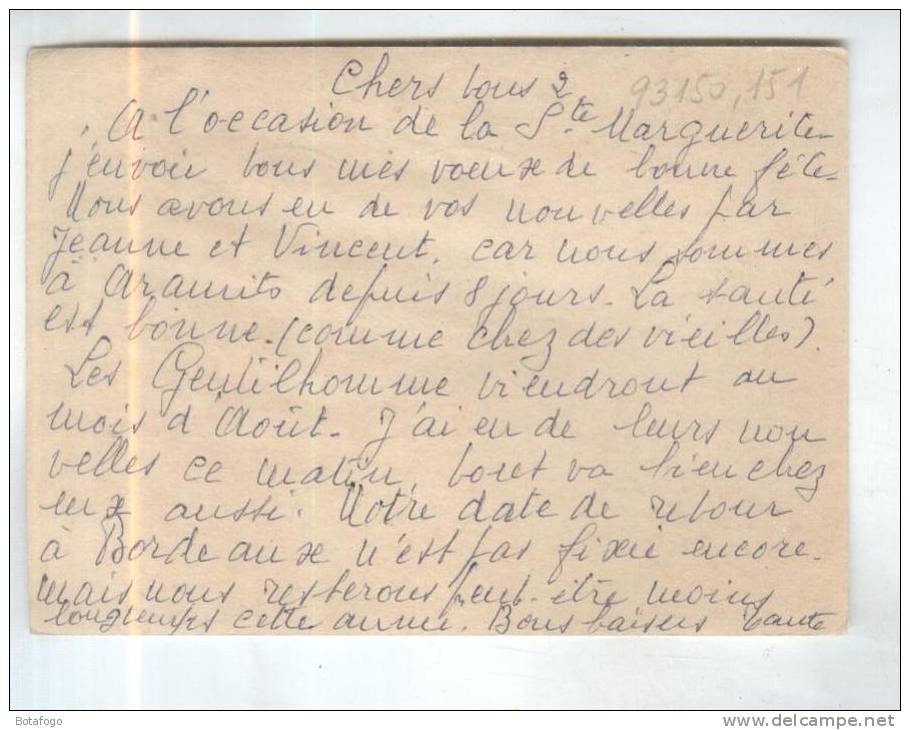 Chers tous 2 93150,151
A l'occasion de la Ste Marguerite
j'envoie tous mes voeux de bonne fête.
Nous avons eu de vos nouvelles par
Jeanne et Vincent. car nous sommes
à Aramits depuis 8 jours. La santé
est bonne. (comme chez des vieilles).
Les Gentilhomme viendront au
mois d'Août. J'ai eu de leurs nou
velles ce matin, tout va bien chez
eux aussi. Notre date de retour
à Bordeaux n'est pas fixée encore.
mais nous resterons peut-être moins
longtemps cette année. Bons baisers Tante
Botafogo
www.delcampe.net